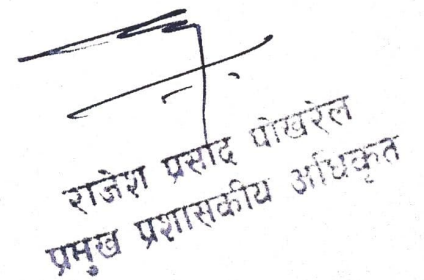 राजेश प्रसाद पोखरेल
प्रमुख प्रशासकीय अधिकृत